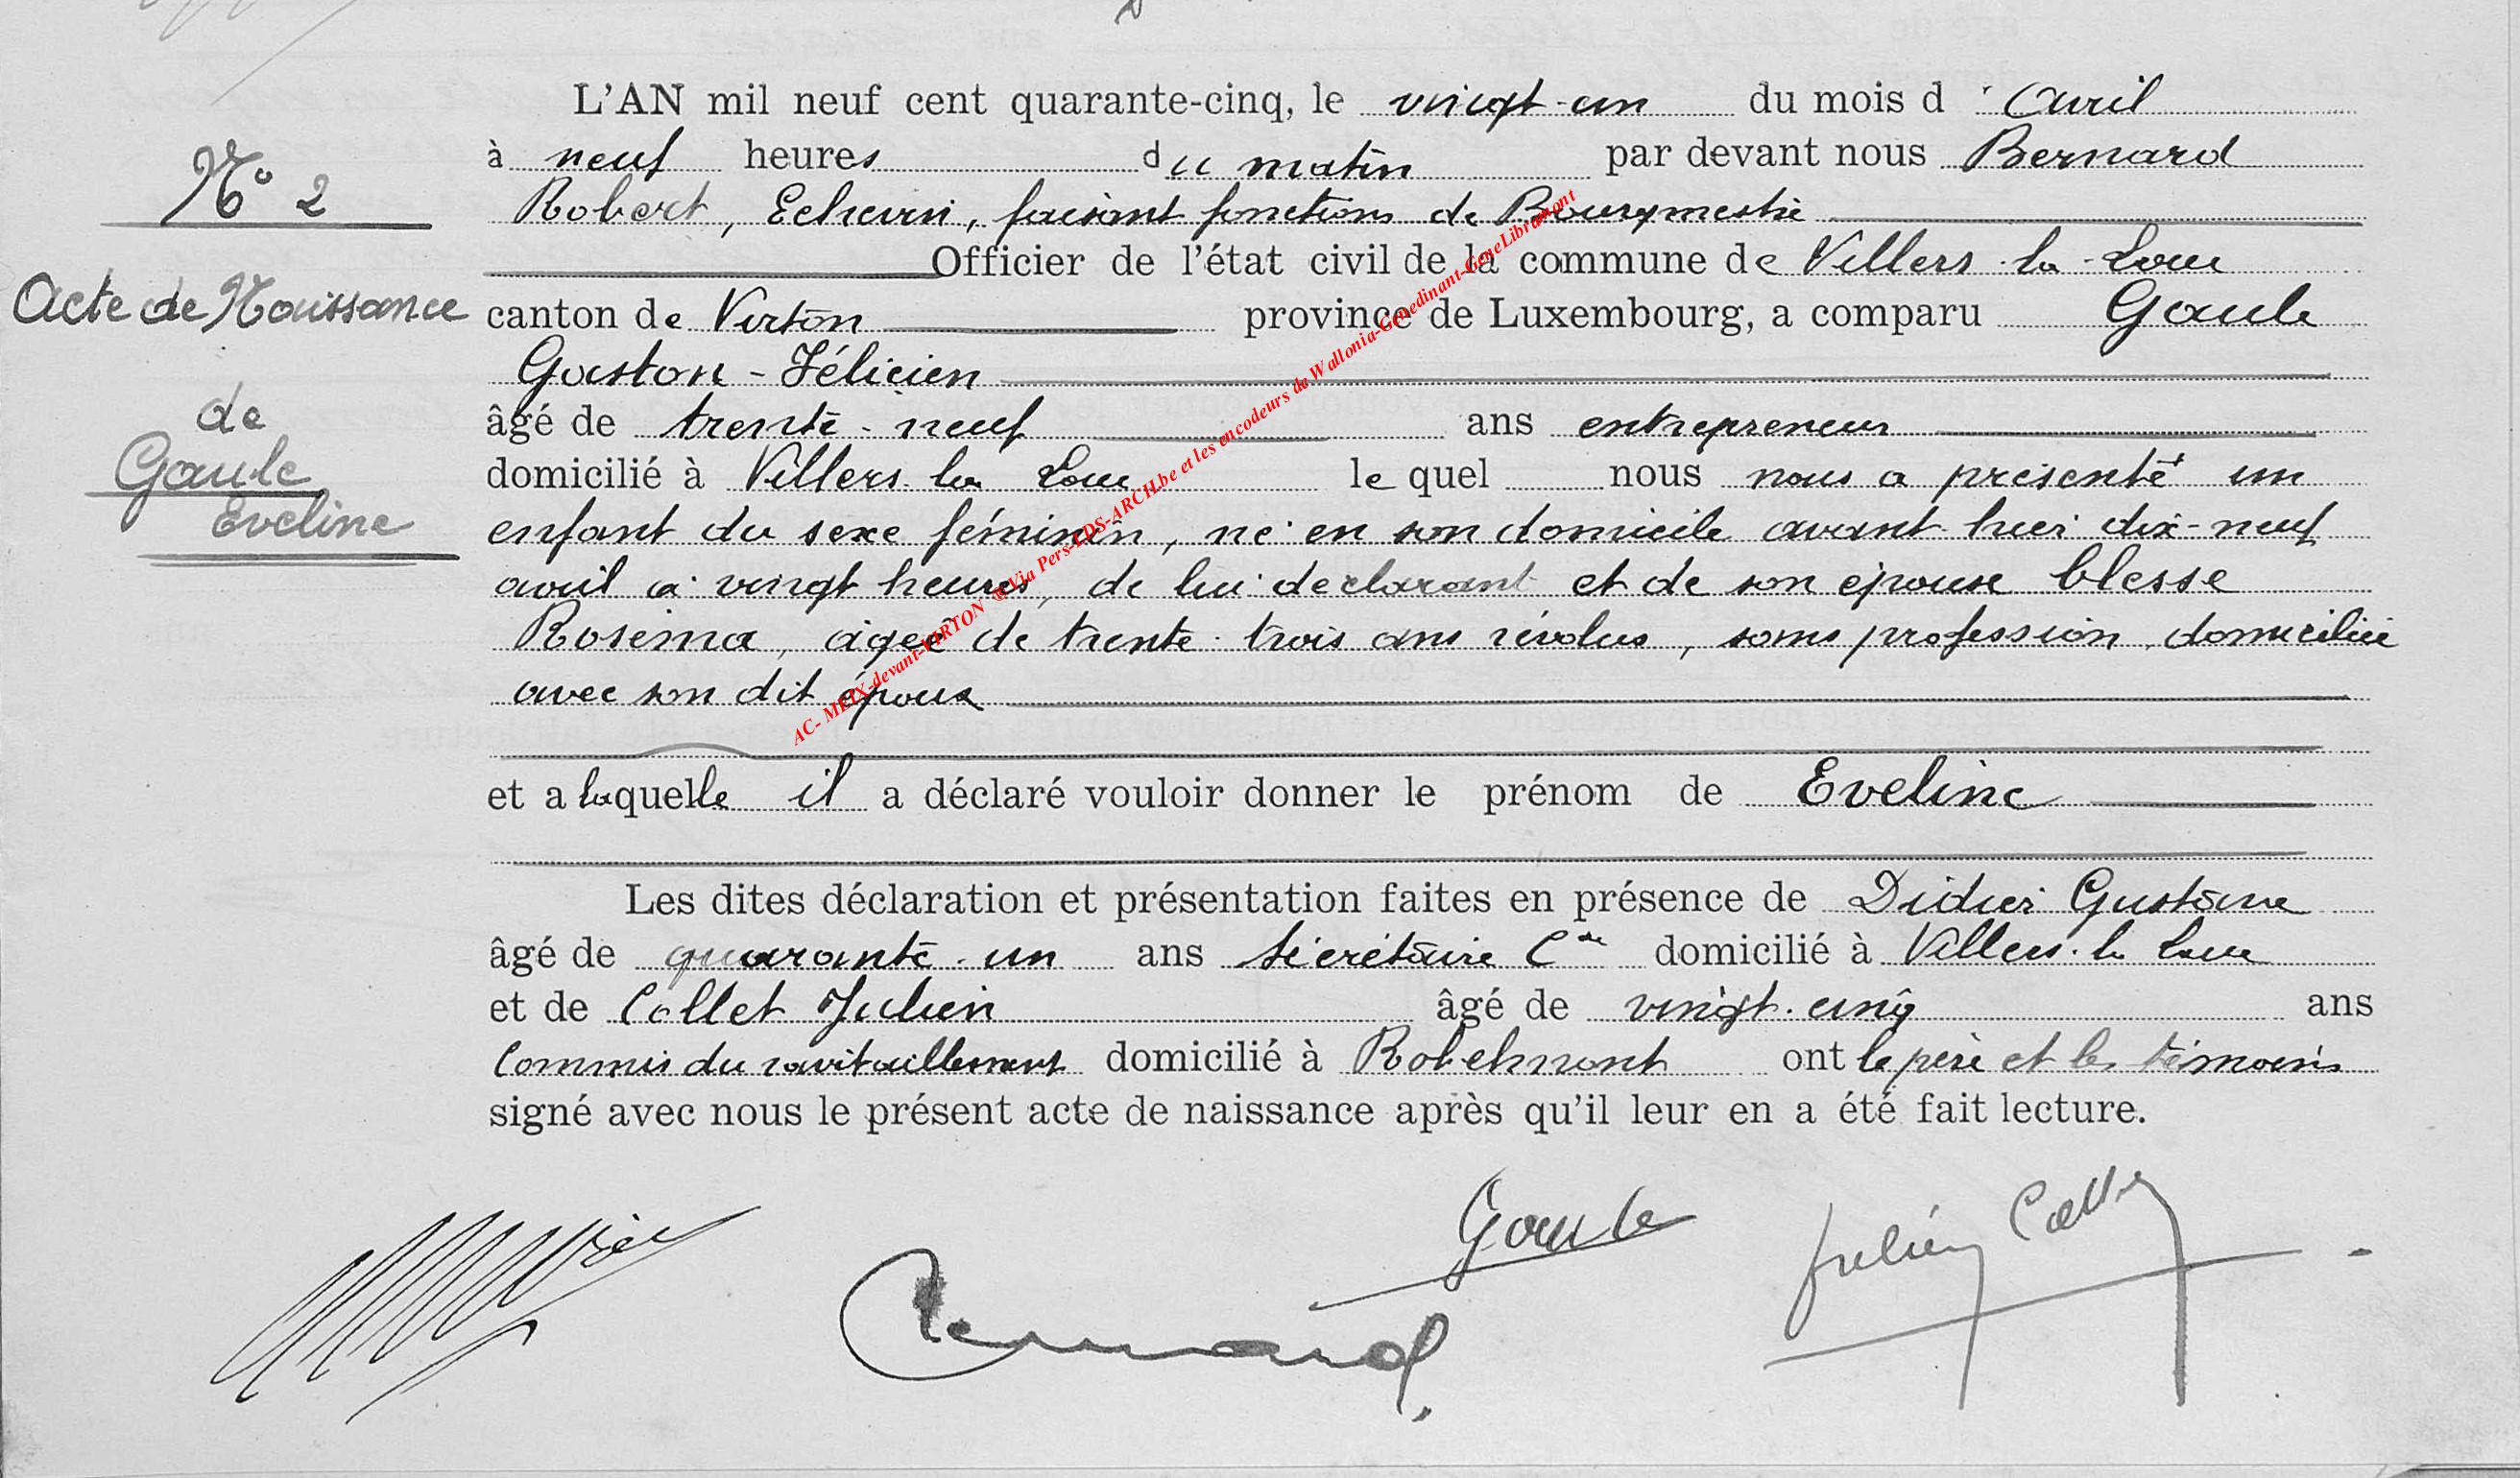 L'AN mil neuf cent quarante-cinq, le vingt-un du mois d'Avril
à neuf heures du matin par devant nous Bernard
Robert, Echevin, faisant fonctions de Bourgmestre
Officier de l'état civil de la commune de Villers-la-Loue
canton de Virton province de Luxembourg, a comparu Goule
Gaston-Félicien
âgé de trente-neuf ans entrepreneur
domicilié à Villers-la-Loue lequel nous nous a présenté un
enfant du sexe féminin, né en son domicile avant-hier dix-neuf
avril à vingt heures, de lui déclarant et de son épouse Clesse
Rosema, âgée de trente-trois ans révolus, sans profession, domiciliée
avec son dit époux
et a laquelle il a déclaré vouloir donner le prénom de Eveline
Les dites déclaration et présentation faites en présence de Didier Gustave
âgé de quarante-un ans secrétaire Cal domicilié à Villers-la-Loue
et de Collet Julien âgé de vingt-cinq ans
Commis du ravitaillement domicilié à Robelmont ont le père et les témoins
signé avec nous le présent acte de naissance après qu'il leur en a été fait lecture.
N° 2
Acte de Naissance
de
Goule
Eveline
Goule
Julien Collet
Bernard
AC- MEIX-devant-VIRTON @Via Pers-EDS-ARCH.be et les encodeurs de Wallonia-Genedinant-GeneLibramont